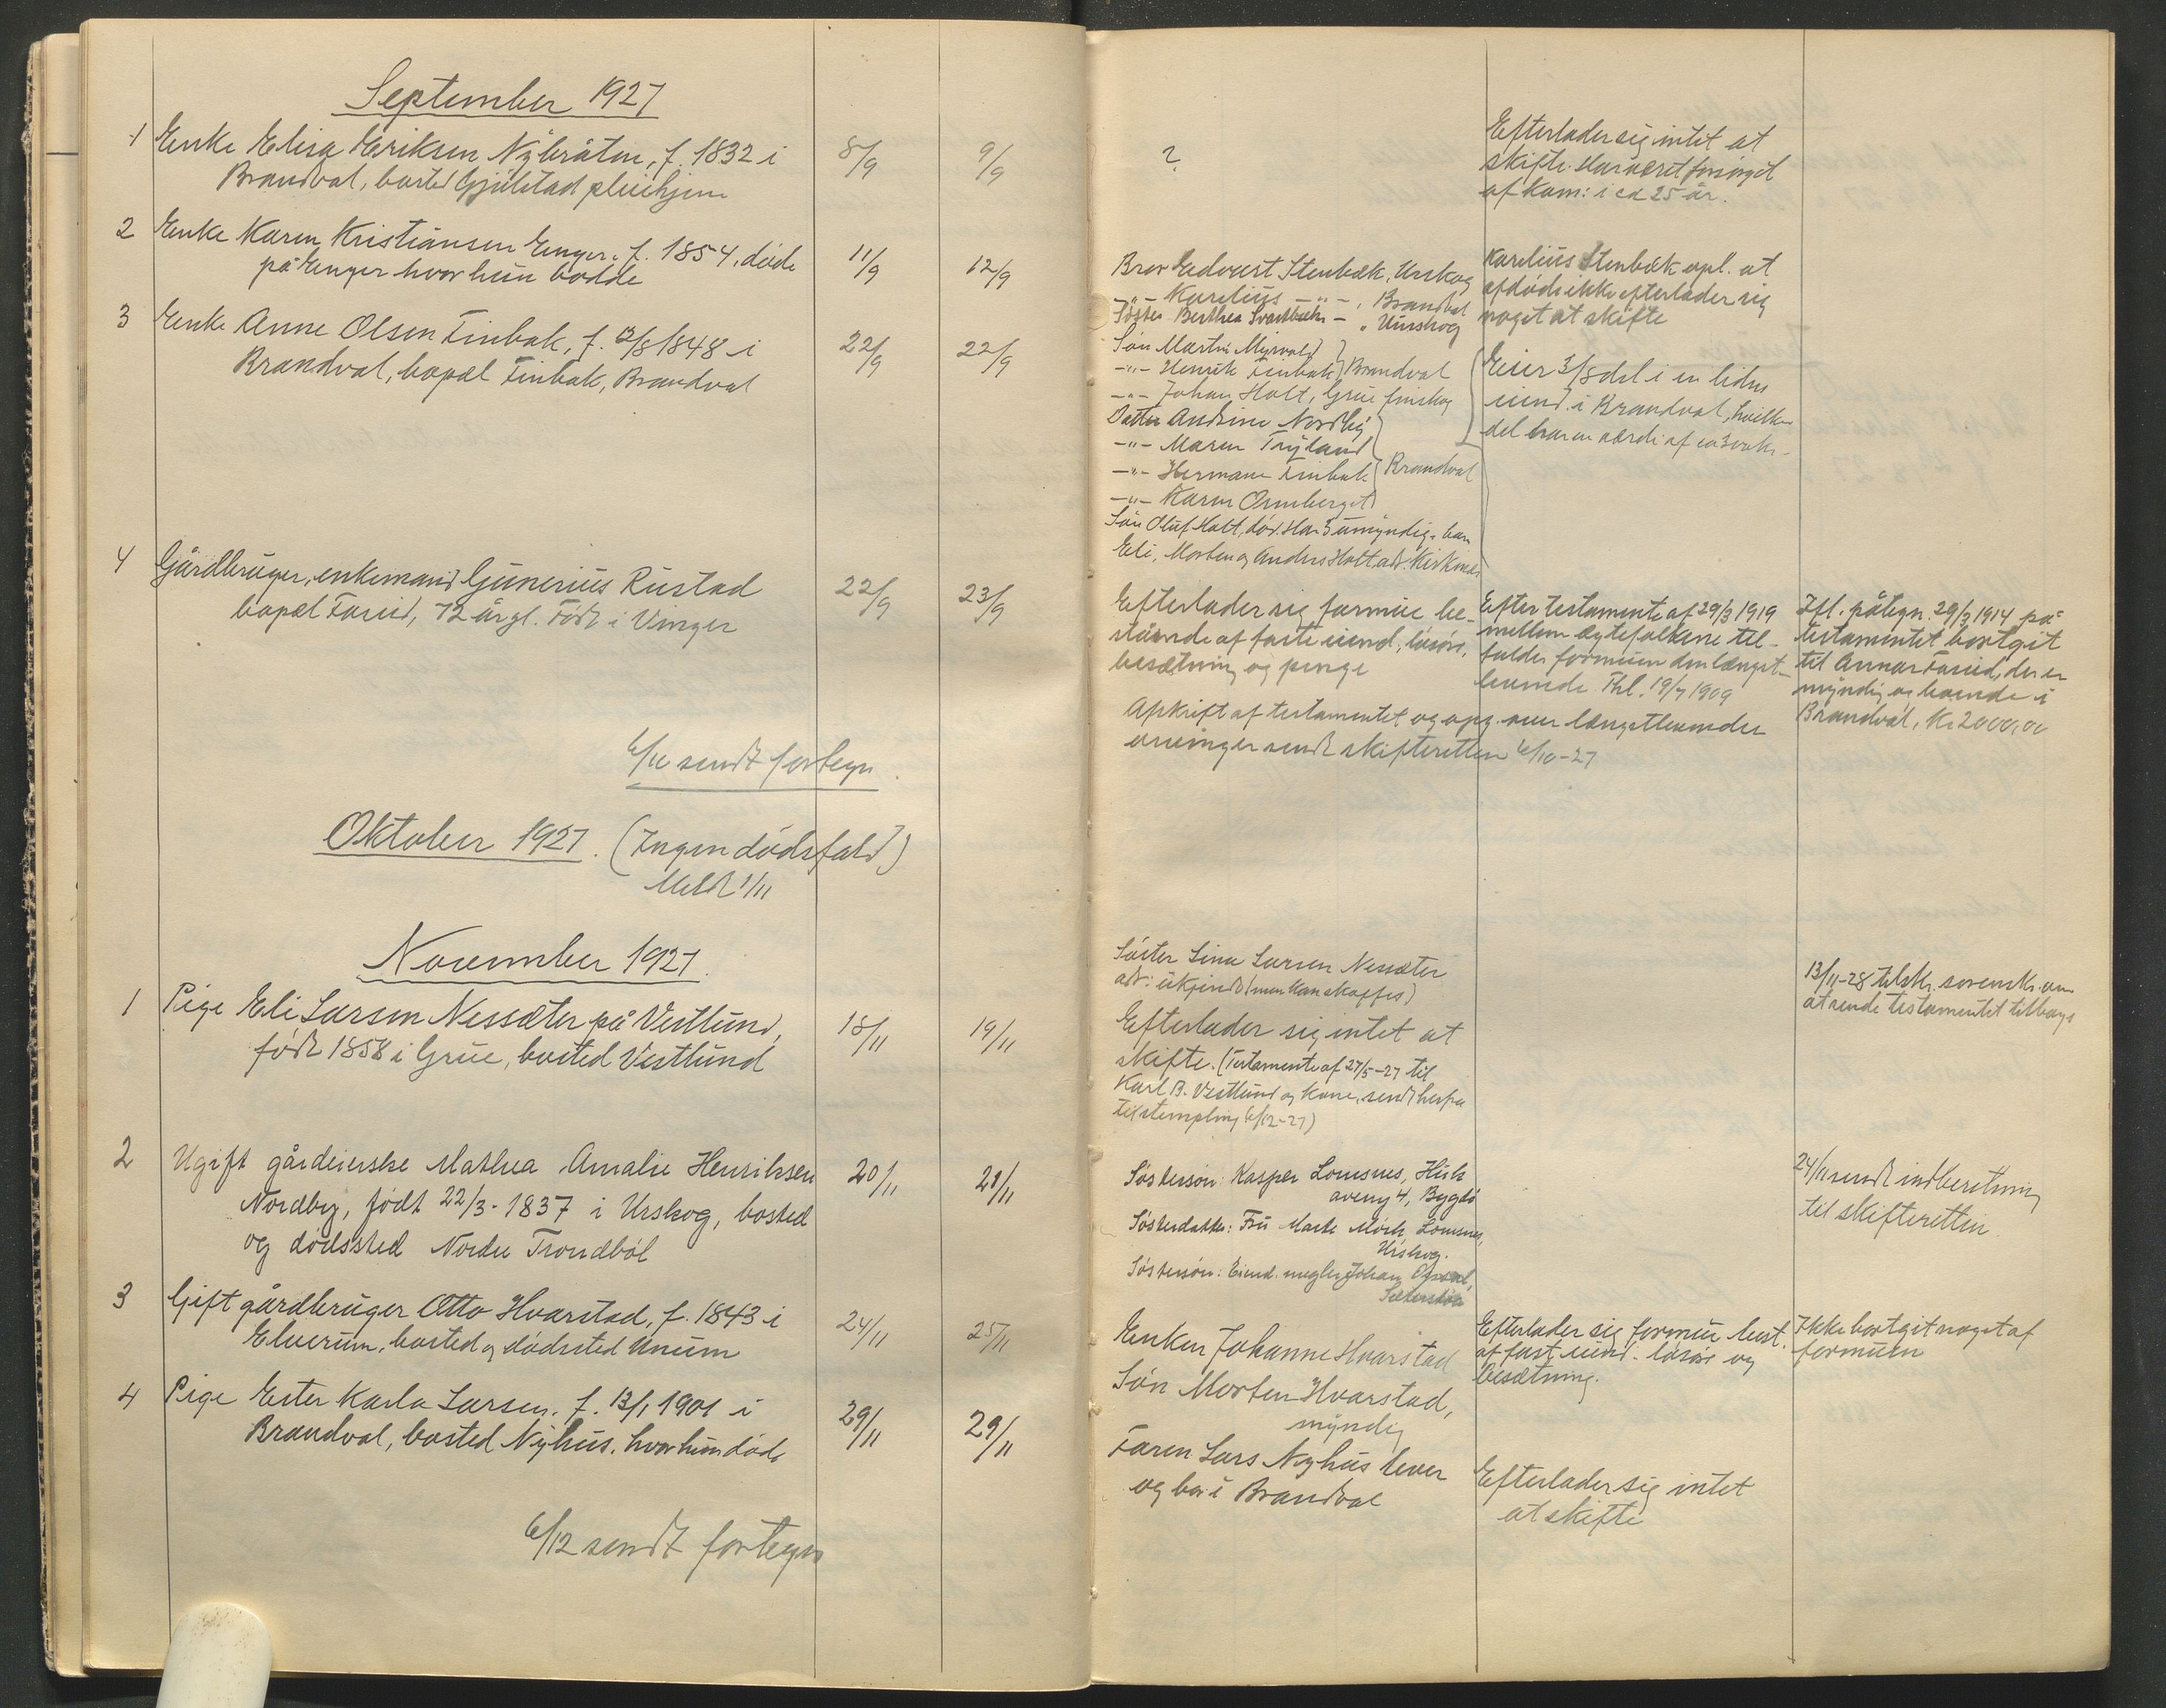 September 1927
1 Enke Elisa Eriksen Nybråten, f. 1832 i
Brandval, bosted Gjölstad pleiehjem
8/9 9/9
?
Efterlader sig intet at
skifte. Har været forsörget
af kom: i ca 25 år.
2 Enke Karen Kristiansen Enger. f. 1854, døde
på Enger hvor hun bodde
11/9 12/9
Bror Edvart Stenbæk, Urskog
-"- Karelius -"-, Brandval
Söster Berthea Svartbæk - , Urskog
Karelius Stenbæk opl. at
afdöde ikke efterlader sig
noget at skifte
3 Enke Anne Olsen Finbak, f. 12/8 1848 i
Brandval, bopæl Finbak, Brandval
22/9 22/9
Sön Martin Myrvold
-"- Henrik Finbak Brandval
-"- Johan Holt, Grue finskog
Datter Andrine Nordby
-"- Maren Tryland
-"- Hermane Finbak Brandval
-"- Karen Ormberget
Sön Oluf Holt, död. Har 3 umyndige barn
Eli, Morten og Anders Holt, adr. Kirkenær
Eier 3/8 del i en liden
eiend. i Brandval, hvilken
del har en værdi af ca 300 kr.
4 Gårdbruger, enkemand Gunerius Rustad
bopæl Farud, 72 år gl. Född i Vinger
22/9 23/9
Efterlader sig formue be-
stående af faste eiend., lösöre,
besætning og penge
Efter testamente af 29/3 1919
mellem ægtefolkene til-
falder formuen den længst-
levende Thl. 19/7 1909
Ifl. påtegn. 29/3 1914 på
testamentet bortgit
til Annar Farud, der er
myndig og boende i
Brandval, Kr. 2000,00
Afskrift af testamentet og opg. over længstlevendes
arvinger sendt skifteretten 6/10-27
6/10 sendt fortegn.
Oktober 1927. (Ingen dödsfald)
Meldt 1/11
November 1927.
1 Pige Eli Larsen Nessæter på Vestlund,
födt 1858 i Grue, bosted Vestlund
18/11 19/11
Söster Lina Larsen Nessæter
adr: ukjendt (men kan skaffes)
Efterlader sig intet at
skifte. (Testamente af 27/5-27 til
Karl B. Vestlund og kone, sendt herfra
til stempling 6/12-27)
13/11-28 tilskr. sorenskr. om
at sende testamentet tilbage
2 Ugift gårdeierske Mathea Amalie Henriksen
Nordby, född 22/3-1837 i Urskog, bosted
og dödssted Nordre Trondböl
20/11 21/11
Sösterson: Kasper Lomsnes, Huk
aveny 4, Bygdö
Sösterdatter: Fru Marte Mörk, Lomsnes,
Urskog.
Sösterson: Eiend. megler Johan Opsal,
24/11 sendt indberetning
til skifteretten
3 Gift gårdbruger Otto Hvarstad, f. 1843 i
Elverum, bosted og dödssted Unum
24/11 25/11
Enken Johanne Hvarstad
Sön Morten Hvarstad,
myndig
Efterlader sig formue best.
af fast eiend. lösöre og
besætning.
Ikke bortgit noget af
formuen
4 Pige Ester Karla Larsen. f. 13/1 1901 i
Brandval, bosted Nyhus, hvor hun döde
29/11 29/11
Faren Lars Nyhus lever
og bor i Brandval
Efterlader sig intet
at skifte
6/12 sendt fortegn